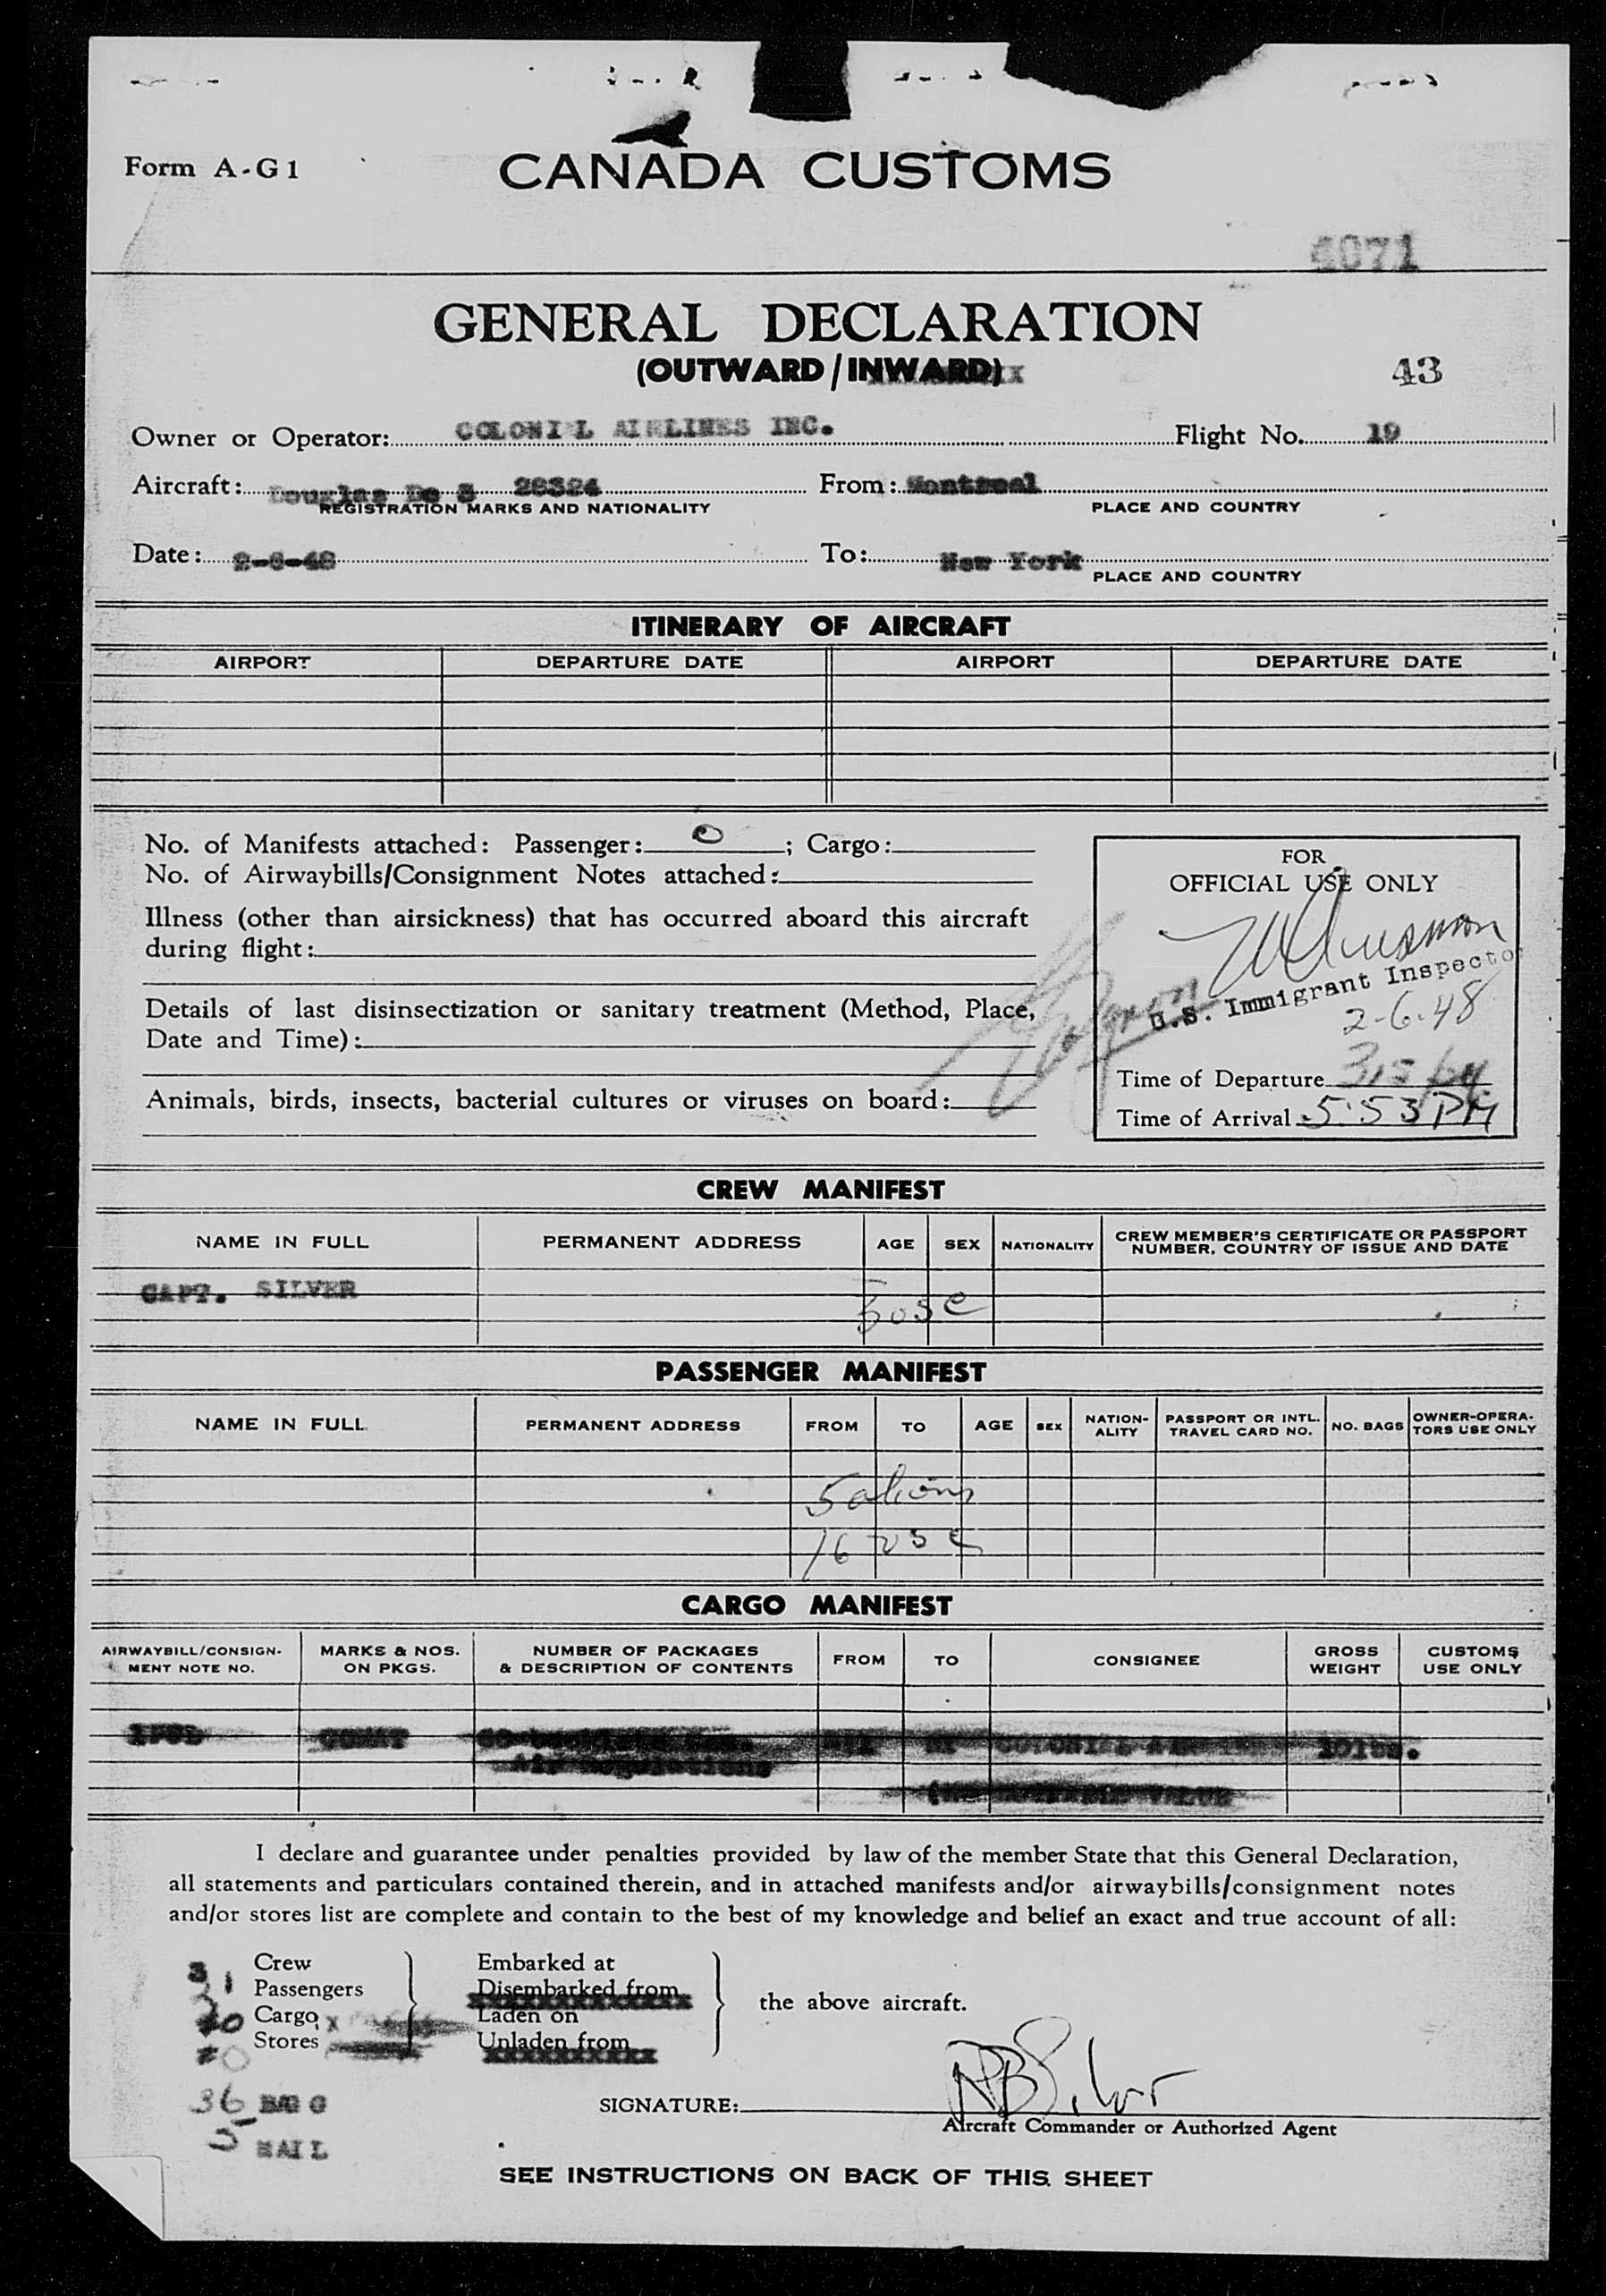 Form A-G1
CANADA CUSTOMS
4071
GENERAL DECLARATION
(OUTWARD/INWARD)
43
Owner or Operator: COLONI L AIRLINES INC. Flight No. 19
Aircraft: Douglas Dc 3 28324 From: Montreal
REGISTRATION MARKS AND NATIONALITY PLACE AND COUNTRY
Date: 2-6-48 To: New York
PLACE AND COUNTRY
ITINERARY OF AIRCRAFT
AIRPORT DEPARTURE DATE AIRPORT DEPARTURE DATE
No. of Manifests attached: Passenger: 0 ; Cargo:
No. of Airwaybills/Consignment Notes attached:
Illness (other than airsickness) that has occurred aboard this aircraft
during flight:
Details of last disinsectization or sanitary treatment (Method, Place,
Date and Time):
Animals, birds, insects, bacterial cultures or viruses on board:
FOR
OFFICIAL USE ONLY
U.S. Immigrant Inspector
2-6-48
Time of Departure 315
Time of Arrival 5:53 PM
CREW MANIFEST
NAME IN FULL PERMANENT ADDRESS AGE SEX NATIONALITY CREW MEMBER'S CERTIFICATE OR PASSPORT
NUMBER, COUNTRY OF ISSUE AND DATE
CAPT. SILVER
3 USC
PASSENGER MANIFEST
NAME IN FULL PERMANENT ADDRESS FROM TO AGE SEX NATION-
ALITY PASSPORT OR INTL.
TRAVEL CARD NO. NO. BAGS OWNER-OPERA-
TORS USE ONLY
5 aliens
16 USC
CARGO MANIFEST
AIRWAYBILL/CONSIGN-
MENT NOTE NO. MARKS & NOS.
ON PKGS. NUMBER OF PACKAGES
& DESCRIPTION OF CONTENTS FROM TO CONSIGNEE GROSS
WEIGHT CUSTOMS
USE ONLY
Air Regulations
I declare and guarantee under penalties provided by law of the member State that this General Declaration,
all statements and particulars contained therein, and in attached manifests and/or airwaybills/consignment notes
and/or stores list are complete and contain to the best of my knowledge and belief an exact and true account of all:
3 Crew
Passengers
Cargo
Stores
Embarked at
Disembarked from
Laden on
Unladen from
the above aircraft.
36 BAG G
5 MAIL
SIGNATURE: Silver
Aircraft Commander or Authorized Agent
SEE INSTRUCTIONS ON BACK OF THIS SHEET